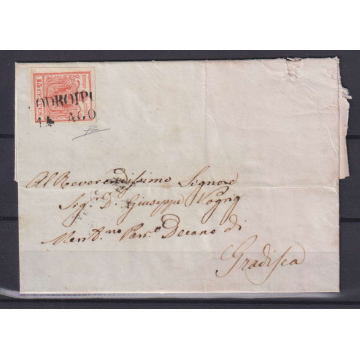 ODROIPO
14 AGO
Al Reverendissimo Signore
Sig.r D. Giuseppe
Merit.mo Par.o Decano di
Gradisca